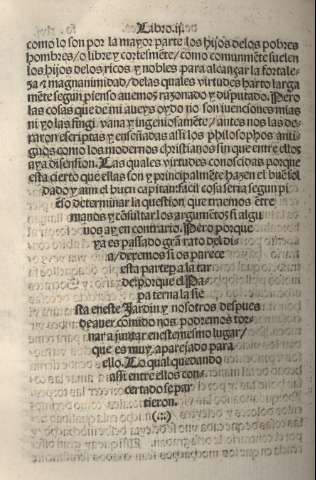 Libro.ij.
como lo son por la mayor parte los hijos delos pobres
hombres/o libre y cortesmẽte/como comunmẽte suelen
los hijos delos ricos y nobles para alcançar la fortale-
za ⁊ magnanimidad/delas quales virtudes harto larga
mẽte segun pienso auemos razonado y disputado. Pero
las cosas que de mi aueys oydo no son inuenciones mias
ni yo las fingi vana y ingeniosamẽte/antes nos las de-
xaron escriptas y enseñadas assi los philosophos anti-
guos como los modernos christianos sin que entre ellos
aya disension. Las quales virtudes conoscidas porque
esta cierto que ellas son y principalmẽte hazen el buẽ sol
dado y aun el buen capitan: facil cosa seria segun pi
ẽso determinar la question que traemos ẽtre
manos y cõsultar los argumẽtos si algu
nos ay en contrario. Pero porque
ya es passado grã rato del di
a/dexemos si os parece
esta parte pa la tar
de: porque el Pa-
pa terna la sie
sta eneste Jardin y nosotros despues
de auer comido nos podremos tor-
nar a juntar eneste mesmo lugar/
que es muy aparejado para
ello. Lo qual quedando
assi entre ellos con-
certado se par
tieron.
(.:.)